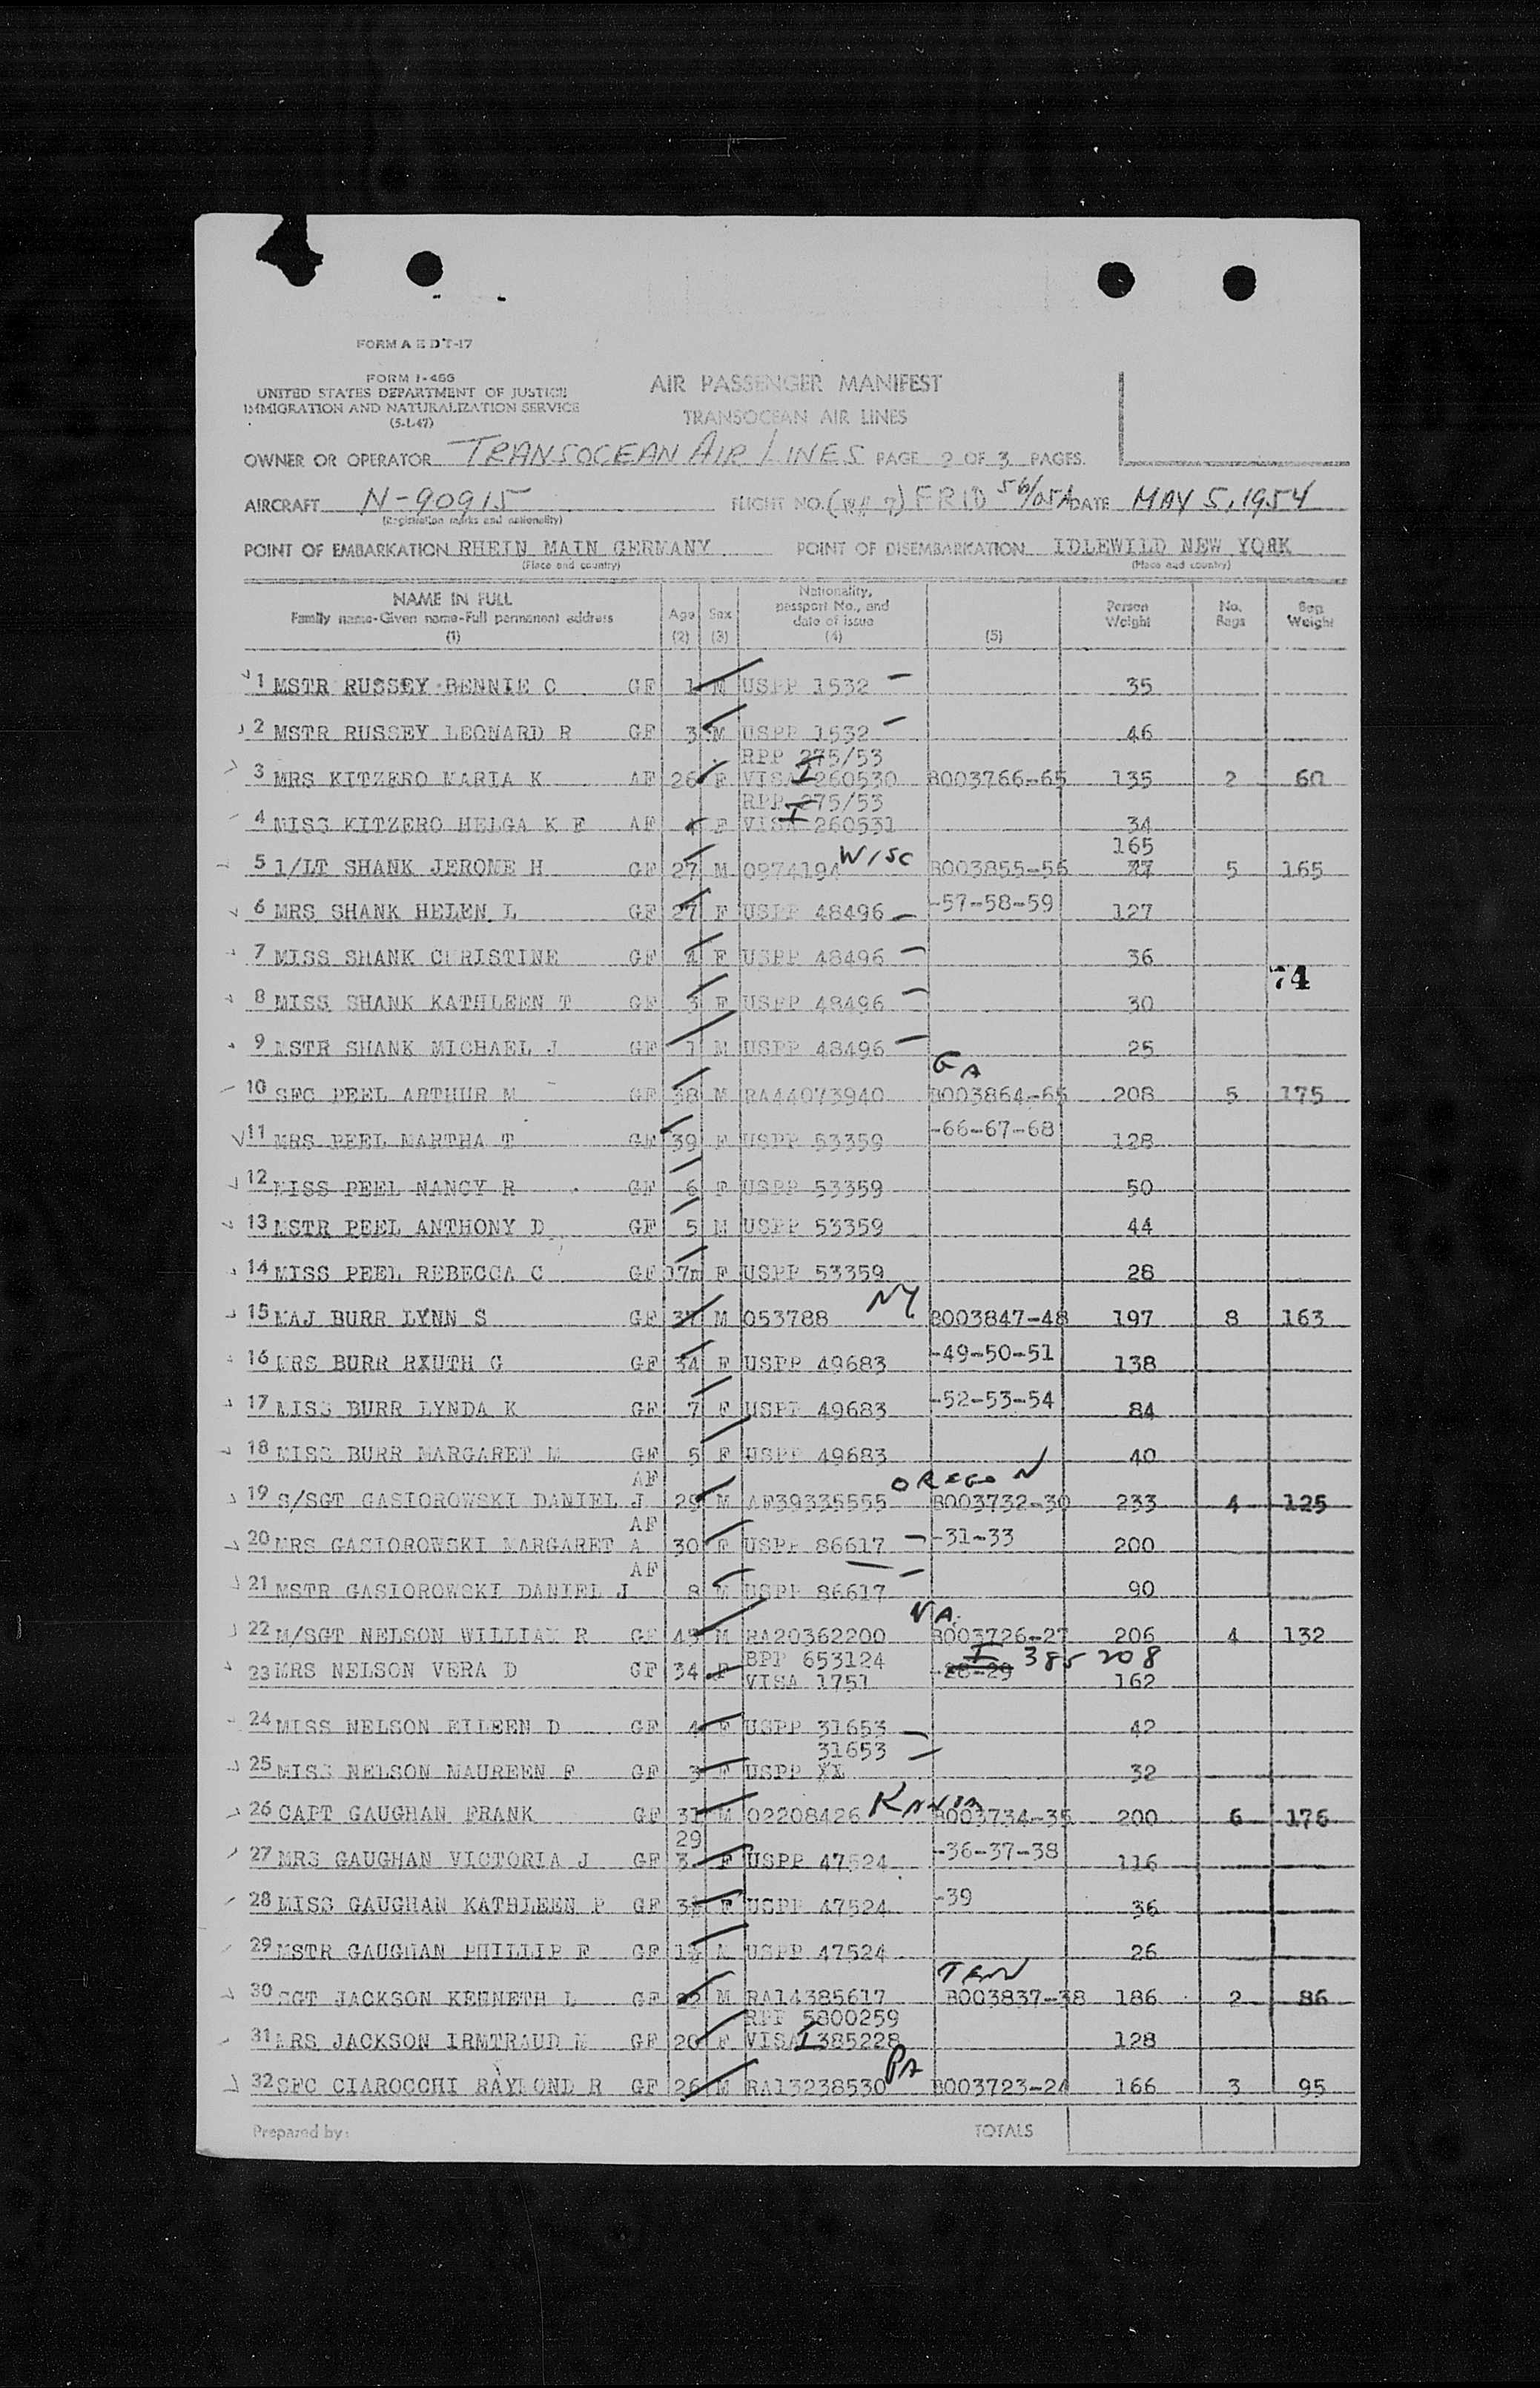 FORM A E D T-17
FORM I-466
UNITED STATES DEPARTMENT OF JUSTICE
IMMIGRATION AND NATURALIZATION SERVICE
(5-1-47)
AIR PASSENGER MANIFEST
TRANSOCEAN AIR LINES
OWNER OR OPERATOR TRANSOCEAN AIR LINES PAGE 2 OF 3 PAGES.
AIRCRAFT N-90915 FLIGHT NO. FRID 56/05A DATE MAY 5, 1954
(Registration marks and nationality)
POINT OF EMBARKATION RHEIN MAIN GERMANY POINT OF DISEMBARKATION IDLEWILD NEW YORK
(Place and country) (Place and country)
NAME IN FULL Family name-Given name-Full permanent address (1) Age (2) Sex (3) Nationality, passport No., and date of issue (4) (5) Person Weight No. Bags Bag Weight
1 MSTR RUSSEY BENNIE C GF 1 M USPP 1532 — 35
2 MSTR RUSSEY LEONARD R GF 3 M USPP 1532 — 46
RPP 275/53
3 MRS KITZERO MARIA K AF 26 F VISA I 260530 B003766-65 135 2 60
RPP 275/53
4 MISS KITZERO HELGA K E AF F VISA I 260531 34
WISC 165
5 1/LT SHANK JEROME H GF 27 M 0974194 B003855-56 77 5 165
6 MRS SHANK HELEN L GF 27 F USPP 48496 — -57-58-59 127
7 MISS SHANK CHRISTINE GF 4 F USPP 48496 — 36
74
8 MISS SHANK KATHLEEN T GF 3 F USPP 48496 — 30
9 MSTR SHANK MICHAEL J GF 1 M USPP 48496 — 25
GA
10 SFC PEEL ARTHUR M GF 38 M RA44073940 B003864-65 208 5 175
11 MRS PEEL MARTHA T GF 39 F USPP 53359 -66-67-68 128
12 MISS PEEL NANCY R GF 6 F USPP 53359 50
13 MSTR PEEL ANTHONY D GF 5 M USPP 53359 44
14 MISS PEEL REBECCA C GF 17m F USPP 53359 28
15 MAJ BURR LYNN S GF 37 M 053788 NY B003847-48 197 8 163
16 MRS BURR RXUTH G GF 34 F USPP 49683 -49-50-51 138
17 MISS BURR LYNDA K GF 7 F USPP 49683 -52-53-54 84
18 MISS BURR MARGARET M GF 5 F USPP 49683 40
AF OREGON
19 S/SGT GASIOROWSKI DANIEL J 29 M AF39335555 B003732-30 233 4 125
AF
20 MRS GASIOROWSKI MARGARET A 30 F USPP 86617 — -31-33 200
AF
21 MSTR GASIOROWSKI DANIEL J 8 M USPP 86617 — 90
VA.
22 M/SGT NELSON WILLIAM R GF 45 M RA20362200 B003726-27 206 4 132
BPP 653124 I 385208
23 MRS NELSON VERA D GF 34 F VISA 1751 -28-29 162
24 MISS NELSON EILEEN D GF 4 F USPP 31653 — 42
31653 —
25 MISS NELSON MAUREEN F GF 3 F USPP XX 32
26 CAPT GAUGHAN FRANK GF 31 M 02208426 B003734-35 200 6 176
29
27 MRS GAUGHAN VICTORIA J GF 3 F USPP 47524 -36-37-38 116
28 MISS GAUGHAN KATHLEEN P GF 3½ F USPP 47524 -39 36
29 MSTR GAUGHAN PHILLIP F GF 1½ M USPP 47524 26
TENN
30 SGT JACKSON KENNETH L GF 22 M RA14385617 B003837-38 186 2 86
RPP 5800259
31 MRS JACKSON IRMTRAUD M GF 20 F VISA I 385228 128
PA
32 SFC CIAROCCHI RAYMOND R GF 26 M RA13238530 B003723-24 166 3 95
Prepared by: TOTALS